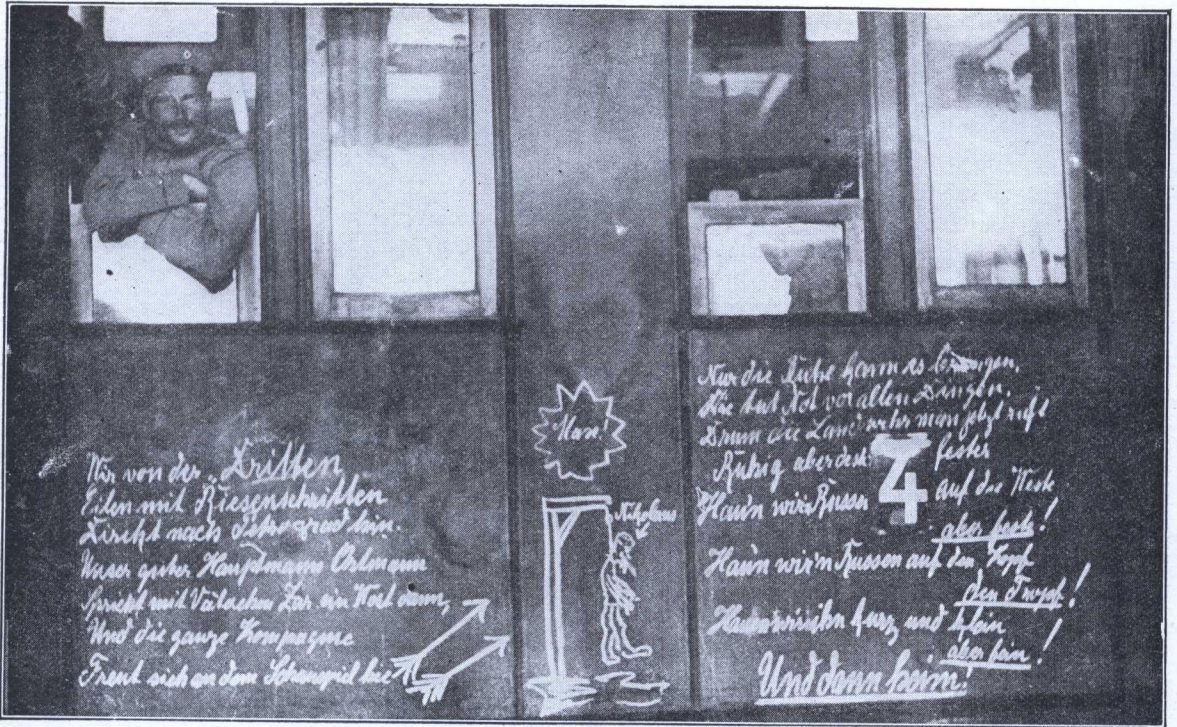 Wir von der „Dritten
Eilen mit Riesenschritten
Direkt nach Petrograd hin.
Unser guter Hauptmann Ortmann
Spricht mit Väterchen Zar ein Wort dann,
Und die ganze Kompagnie
Freut sich an dem Schauspiel hie
Nikolaus
Nur die Ruhe kann es bringen,
Die tut Not vor allen Dingen.
Drum die Landwehr man jetzt ruft
Ruhig aber desto fester
Haun wir'n Russen auf die Weste
aber feste!
4
Haun wir'n Russen auf den Kopf
den Tropf!
kurz und klein
aber fein!
Und dann heim!